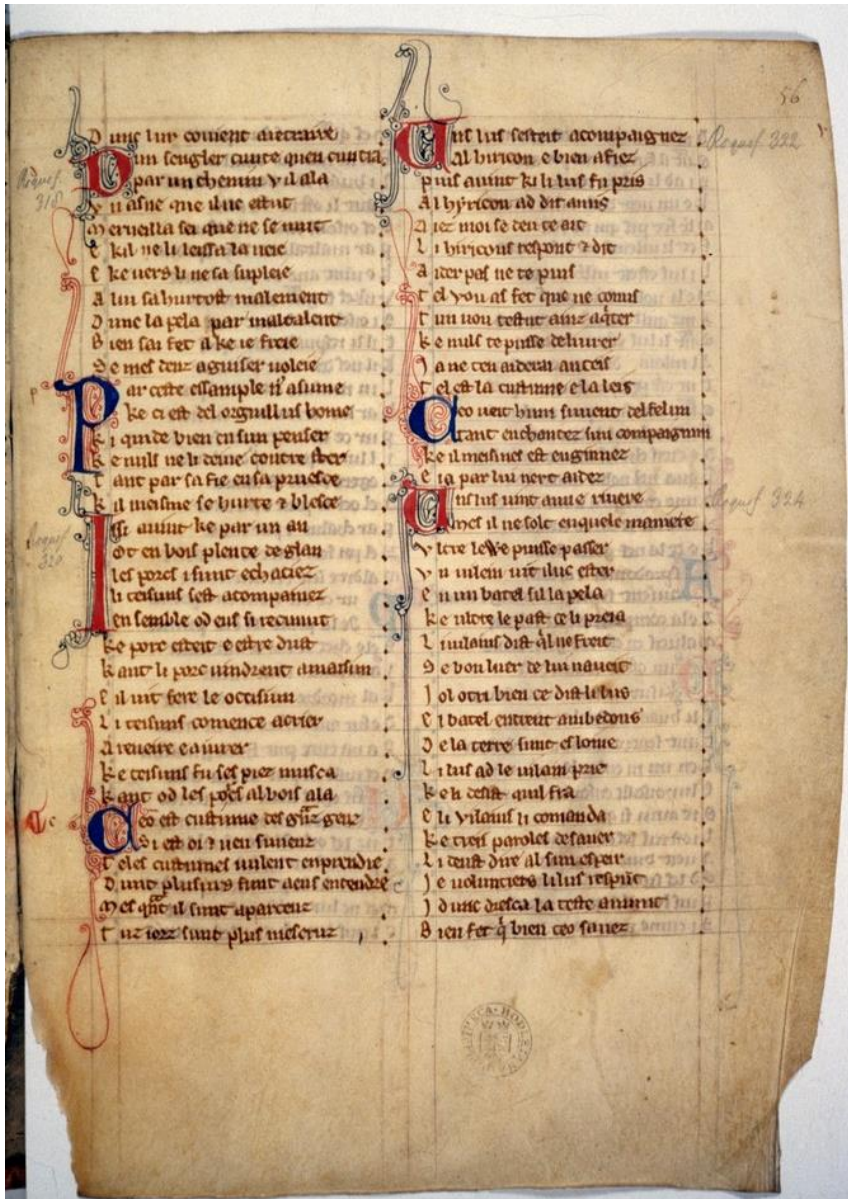 56
D unc lur couient
D un sengler cunte q̃ en cuntra
par un chemin v il ala
V n asne que iluec estut
M erueilla sei que ne se mut
E kil ne li leissa la ueie
E ke uers li ne sa supleie
A lui sa hurtott malement
D unc la pela par maltalent
B ien sai fet a ke ie freie
S e mes denz aguiser uoleie
P ar ceste essample
ke ci est del orguillus home
K i quide bien en sun penser
K e nuls ne li deiue contre ster
T ant par sa fie en sa pruesce
K il meisme se hurte ⁊ blesce
I ssi auint ke par un an
ot en bois plente de glan
les porcs i sunt echaciez
li teisuns sest acompainez
en semble od eus si recunut
Ke porc esteit e estre dust
K ant li porc uindrent a maisun
E il uit fere le occisiun
L i teisuns comence a crier
A reneire e a iurer
K e teisuns fu ses piez musca
K ant od les porcs al bois ala
C eo est custume
Si est oi ⁊ ueu
T eles custumes uulent enprendre
D unt plusurs funt a eus entendre
M es qñt il sunt aparceuz
T uz iorz sunt plus mescruz
Uns lus sesteit acompaignez
Al hiricon e bien afiez
puis auint ki li lus fu pris
A l hyricon ad dit amis
A iez moi se deu te ait
L i hiricons respont ⁊ dit
A ider pas ne te puis
T el vou as fet que ne conuis
T un uou testut ainz aq̃ter
K e nuls te puisse deliurer
J a ne ten aiderai anceis
T el est la custume e la leis
C eo ueit hum suuent del felun
tant enchantez sun compaignun
K e il meismes est enginnez
E ia par lui nert aidez
Uns lus uint a une riuere
mes il ne solt en quele manere
V ltre lewe puisse passer
V n uilein uit iluc ester
E n un batel sil la pela
K e ultre le past ce li preia
L i uilains dist q̃l ne freit
S e bon luer de lui naueit
J ol otri bien ce dist li lus
E l batel entrent ambedous
D e la terre sunt eslonie
L i lus ad le uilain prie
K e li desist quil fra
E li vilains li comanda
K e treis paroles de sauer
L i deust dire al sun espeir
J e uolunters li lus respunt
J dunc dresca la teste amunt
B ien fet q̃ bien ceo sauez
Roquef. 318
Roquef. 320
Roquef 322
Roquef. 324